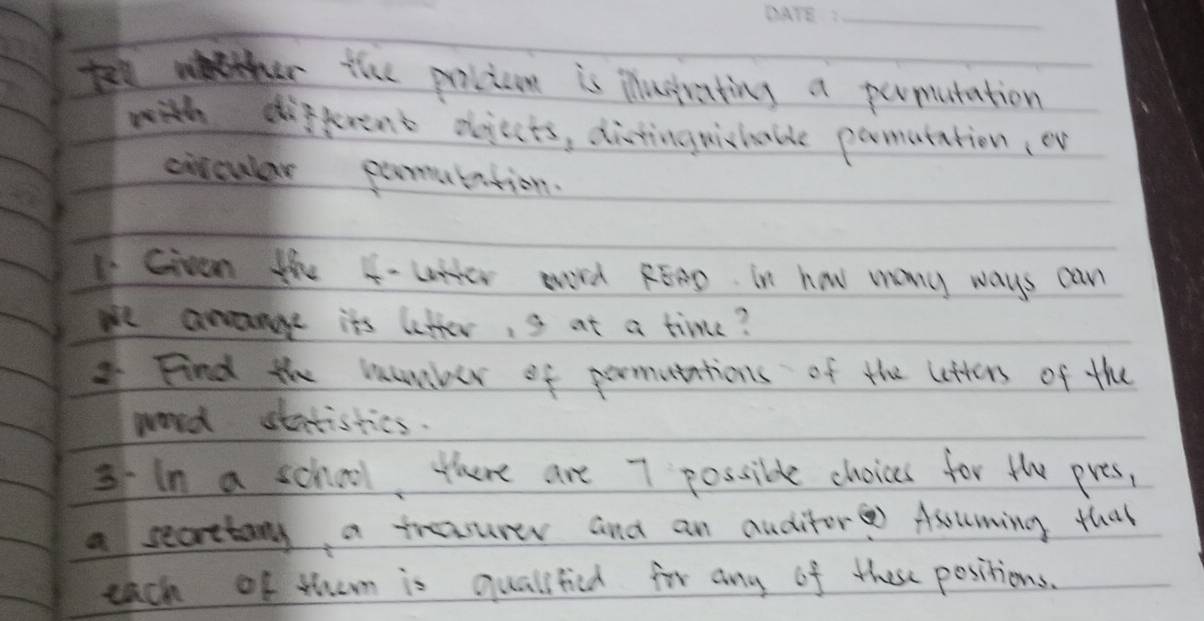 DATE :
tell whether the problem is illustrating a permutation
with different objects, distinguishable permutation, or
circular permutation.
1. Given the 4-letter word READ. in how many ways can
we arrange its letter, 3 at a time?
2. Find the number of permutations of the letters of the
word statistics.
3. In a school, there are 7 possible choices for the pres,
a secretary, a treasurer and an auditor. Assuming that
each of them is qualified for any of these positions.